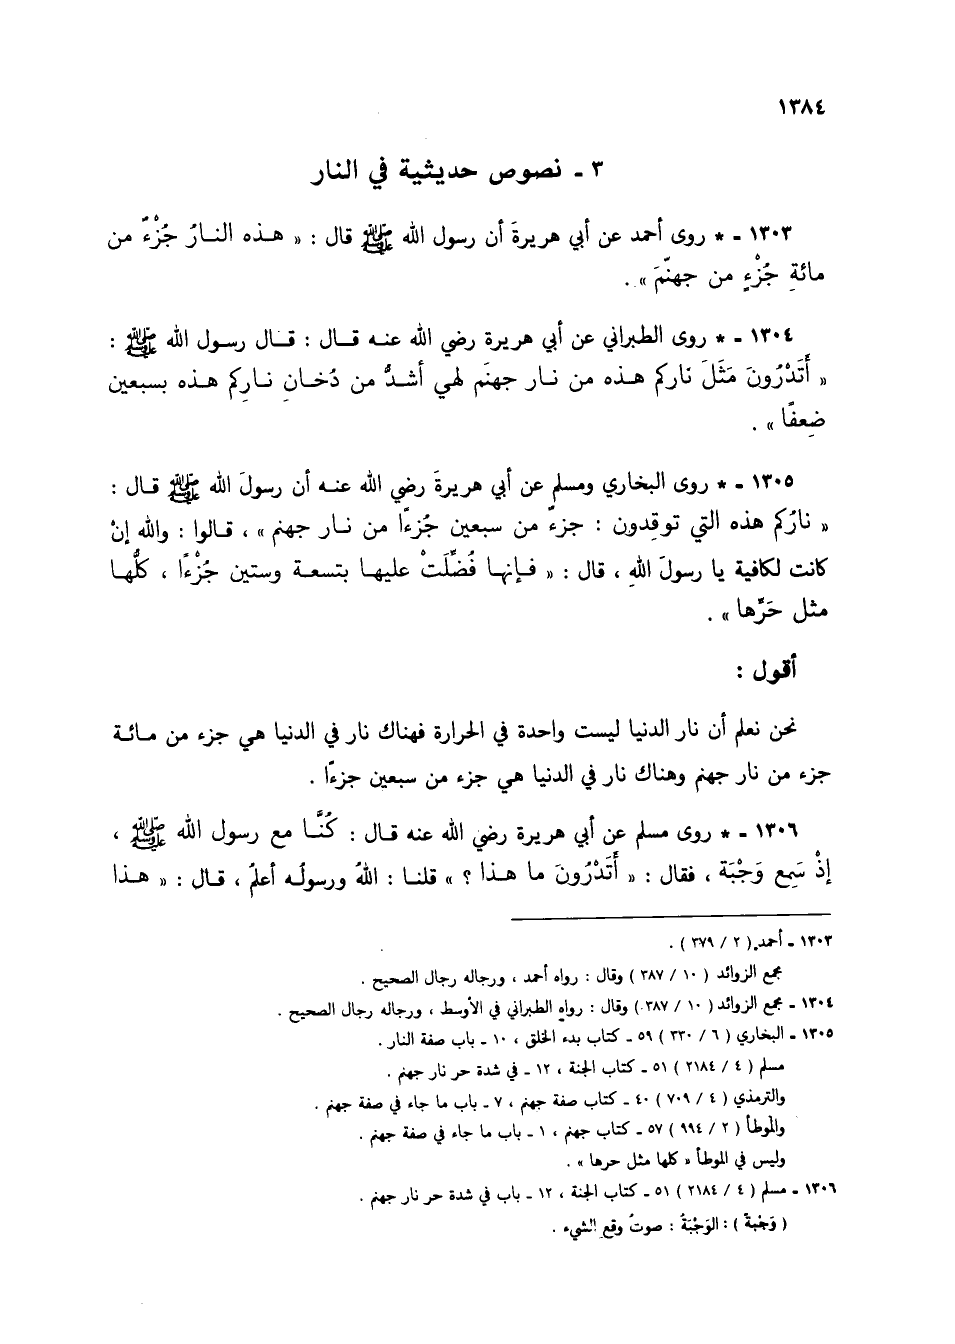 ١٣٨٤
٣ ـ نصوص حديثية في النار
١٣٠٣ ـ * روى أحمد عن أبي هريرةَ أن رسول الله ﷺ قال : « هـذه النـارُ جُزْءٌ من
مائةِ جُزْءٍ من جهنّمَ » .
١٣٠٤ ـ * روى الطبراني عن أبي هريرة رضي الله عنـه قـال : قـال رسـول الله ﷺ :
« أَتَدْرُونَ مَثَلَ نَاركم هـذه من نـار جهنَم لهي أشـدُّ من دُخـانِ نـارِكم هـذه بسبعين
ضِعفًا » .
١٣٠٥ ـ * روى البخاري ومسلم عن أبي هريرةَ رضي الله عنـه أن رسولَ الله ﷺ قـال :
« نارُكم هذه التي توقِدون : جزءٌ من سبعين جُزءًا من نـار جهنم » ، قـالوا : والله إنْ
كانت لكافية يا رسولَ اللهِ ، قال : « فـإنهـا فُضِّلَتْ عليهـا بتسعـة وستين جُزْءًا ، كلُّهـا
مثل حَرِّها » .
أقول :
نحن نعلم أن نار الدنيا ليست واحدة في الحرارة فهناك نار في الدنيا هي جزء من مـائـة
جزء من نار جهنم وهناك نار في الدنيا هي جزء من سبعين جزءًا .
١٣٠٦ ـ * روى مسلم عن أبي هريرة رضي الله عنه قـال : كُنَّـا مع رسول الله ﷺ ،
إذْ سَمِع وَجْبَة ، فقال : « أَتَدْرُونَ ما هـذا ؟ » قلنـا : اللهُ ورسولُـه أعلمُ ، قال : « هـذا
١٣٠٣ ـ أحمد ( ٢ / ٣٧٩ ) .
مجمع الزوائد ( ١٠ / ٣٨٧ ) وقال : رواه أحمد ، ورجاله رجال الصحيح .
١٣٠٤ ـ مجمع الزوائد ( ١٠ / ٣٨٧ ) وقال : رواه الطبراني في الأوسط ، ورجاله رجال الصحيح .
١٣٠٥ ـ البخاري ( ٦ / ٣٣٠ ) ٥٩ ـ كتاب بدء الخلق ، ١٠ ـ باب صفة النار .
مسلم ( ٤ / ٢١٨٤ ) ٥١ ـ كتاب الجنة ، ١٢ ـ في شدة حر نار جهنم .
والترمذي ( ٤ / ٧٠٩ ) ٤٠ ـ كتاب صفة جهنم ، ٧ ـ باب ما جاء في صفة جهنم .
والموطأ ( ٢ / ٩٩٤ ) ٥٧ ـ كتاب جهنم ، ١ ـ باب ما جاء في صفة جهنم .
وليس في الموطأ « كلها مثل حرها » .
١٣٠٦ ـ مسلم ( ٤ / ٢١٨٤ ) ٥١ ـ كتاب الجنة ، ١٢ ـ باب في شدة حر نار جهنم .
( وَجْبَة ) : الوَجْبَةُ : صوتُ وقع الشيء .